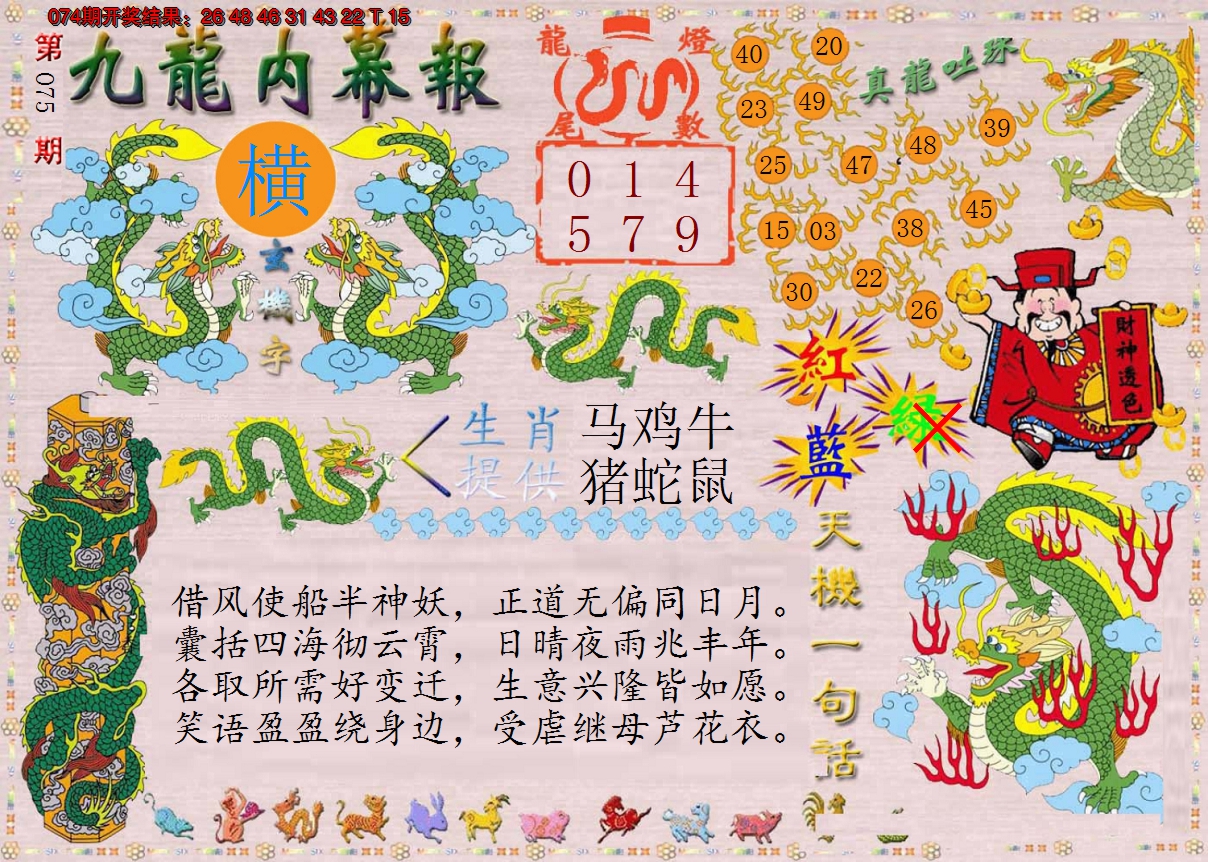 074期开奖结果：26 48 46 31 43 22 T 15
第075期
九龍内幕報
横
玄機字
龍燈尾數
0 1 4
5 7 9
真龍吐珠
40 20
23 49
25 47 48 39
15 03 38 45
30 22 26
紅
綠
藍
財神透色
生肖提供
马鸡牛
猪蛇鼠
天機一句话
借风使船半神妖，正道无偏同日月。
囊括四海彻云霄，日晴夜雨兆丰年。
各取所需好变迁，生意兴隆皆如愿。
笑语盈盈绕身边，受虐继母芦花衣。